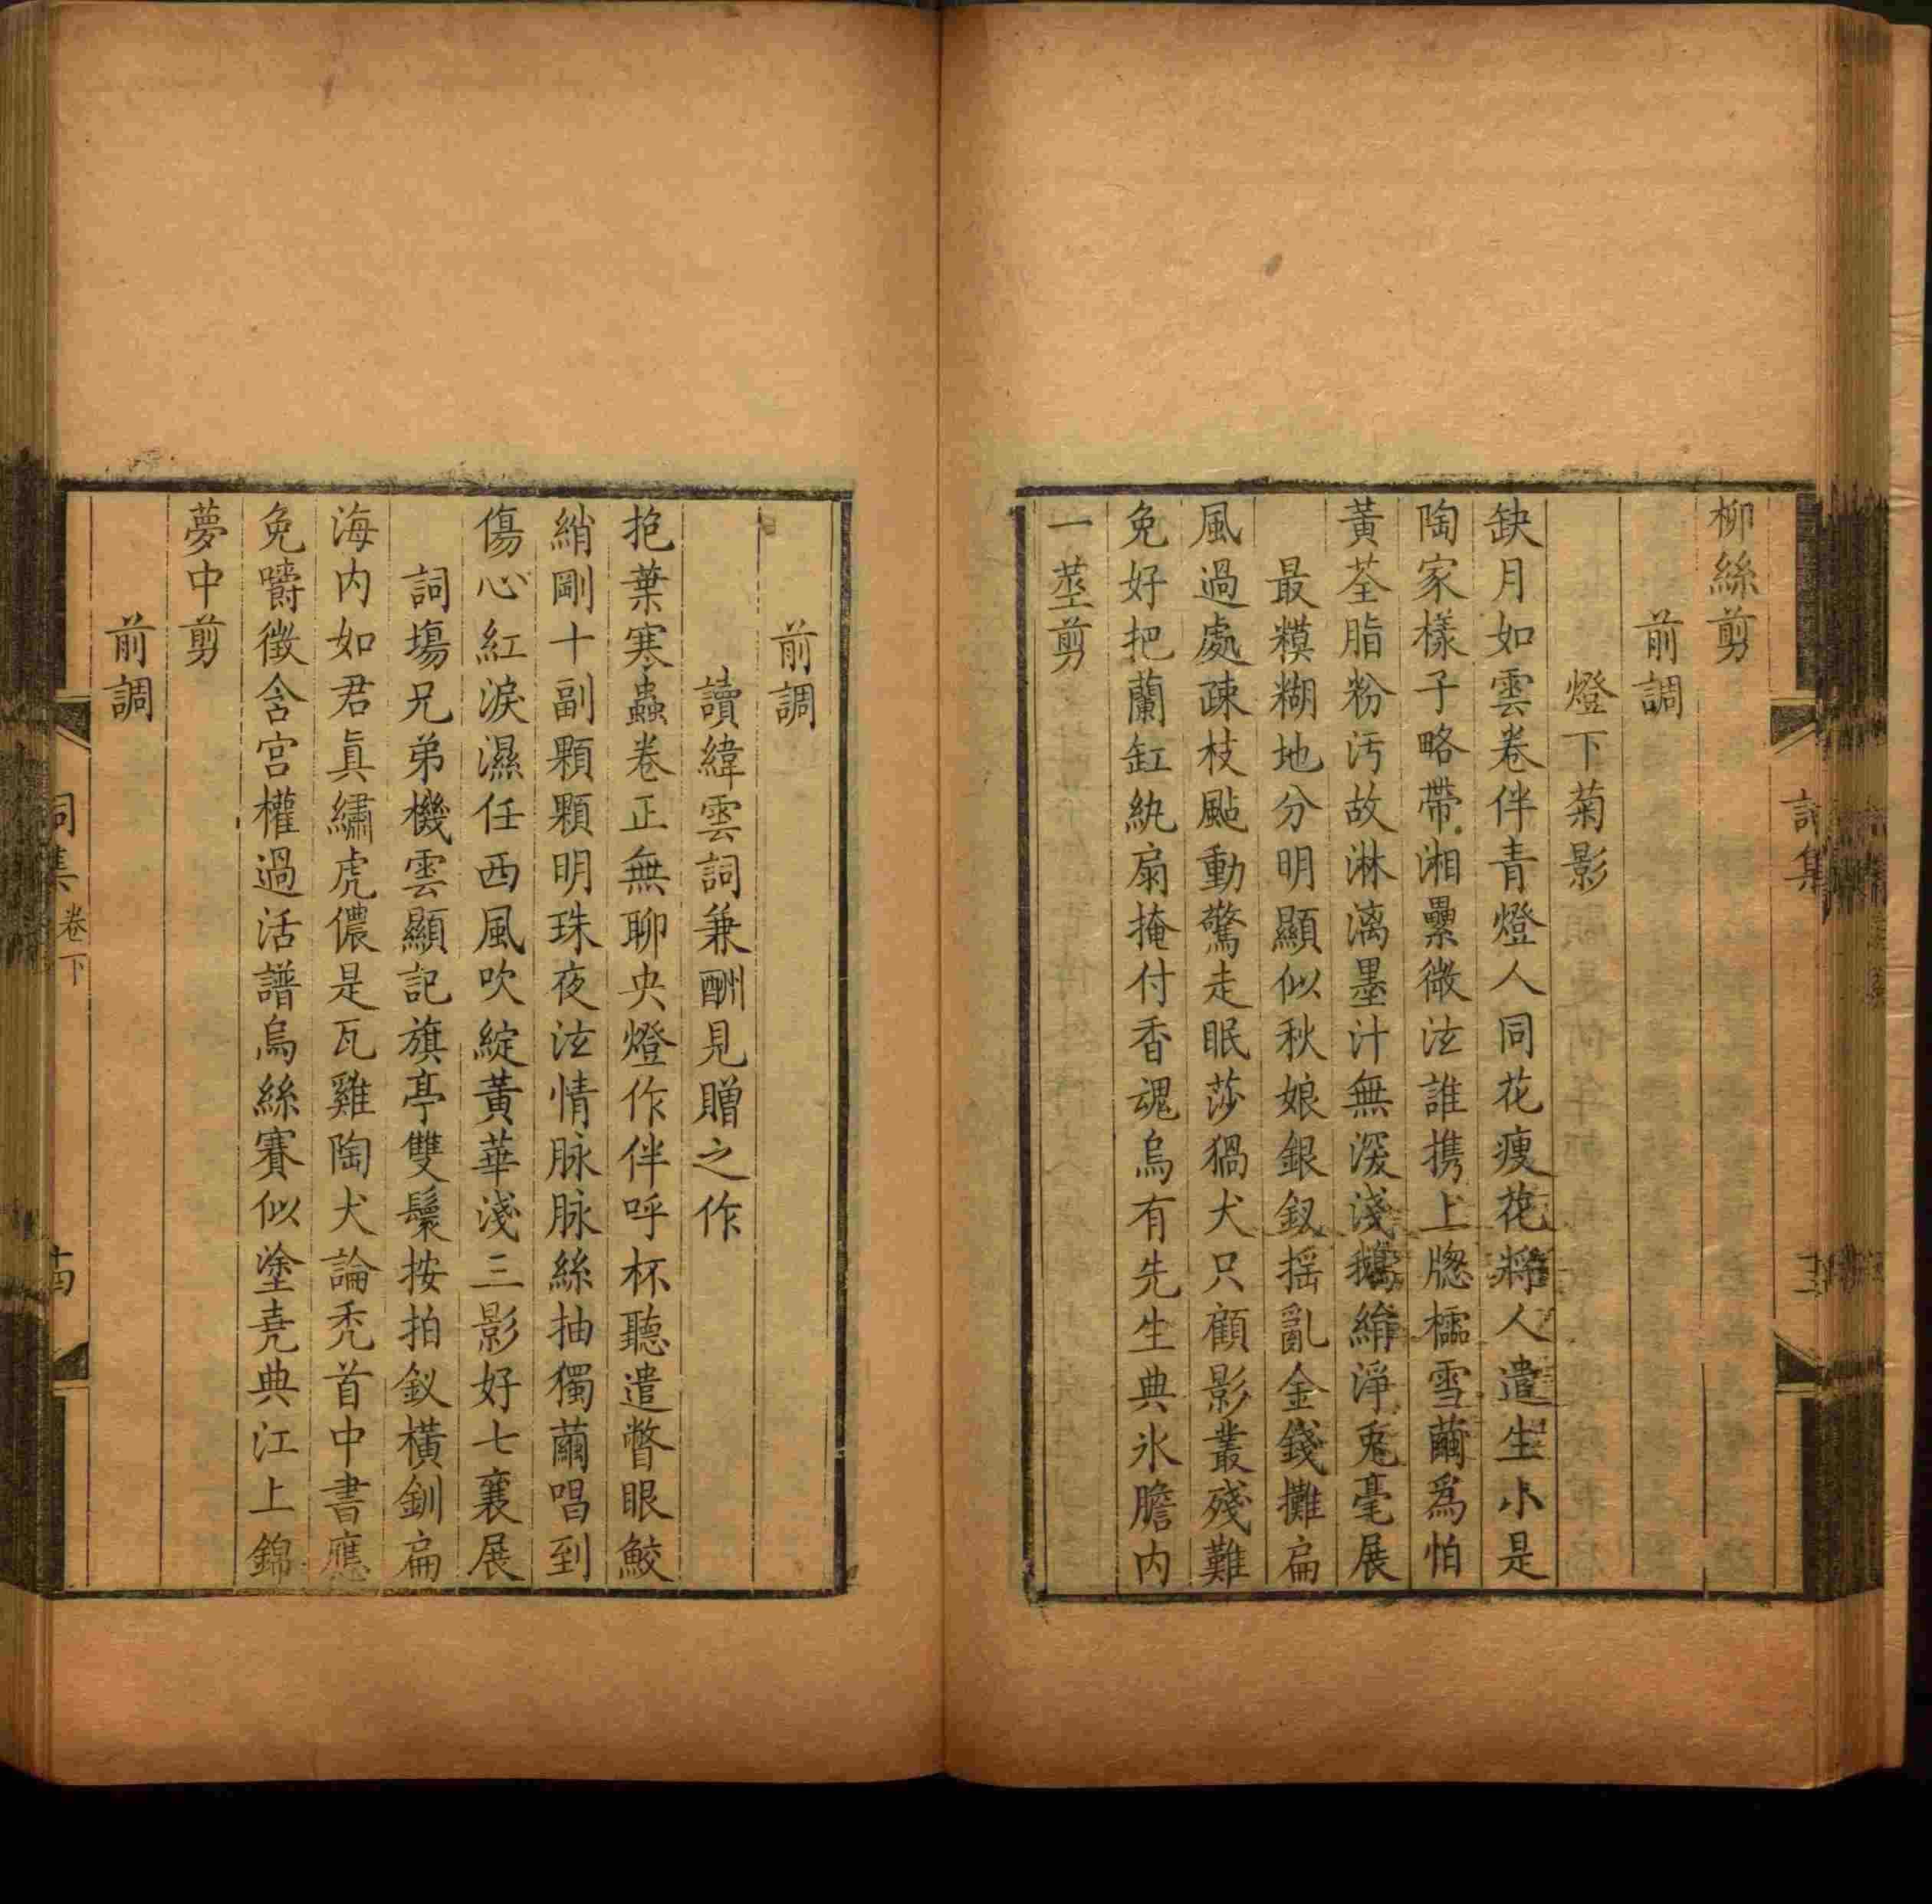 柳絲剪
前調
燈下菊影
缺月如雲卷伴青燈人同花瘦花將人遣生小是
陶家樣子略帶湘纍微泫誰携上牕櫺雪繭爲怕
黃荃脂粉汚故淋漓墨汁無深淺鵝絹淨兎毫展
最糢糊地分明顯似秋娘銀釵摇亂金錢攤扁
風過處疎枝颭動驚走眠莎猧犬只顧影叢殘難
免好把蘭缸紈扇掩付香魂烏有先生典氷膽内
一莖剪
前調
讀緯雲詞兼酬見贈之作
抱葉寒蟲卷正無聊央燈作伴呼杯聽遣瞥眼鮫
綃剛十副顆顆明珠夜泫情脉脉絲抽獨繭唱到
傷心紅淚濕任西風吹綻黃華淺三影好七襄展
詞塲兄弟機雲顯記旗亭雙鬟按拍釵橫釧扁
海内如君眞繡虎儂是瓦雞陶犬論禿首中書應
免嚼徵含宫權過活譜烏絲賽似塗堯典江上錦
夢中剪
前調
詞集
卷下
十四